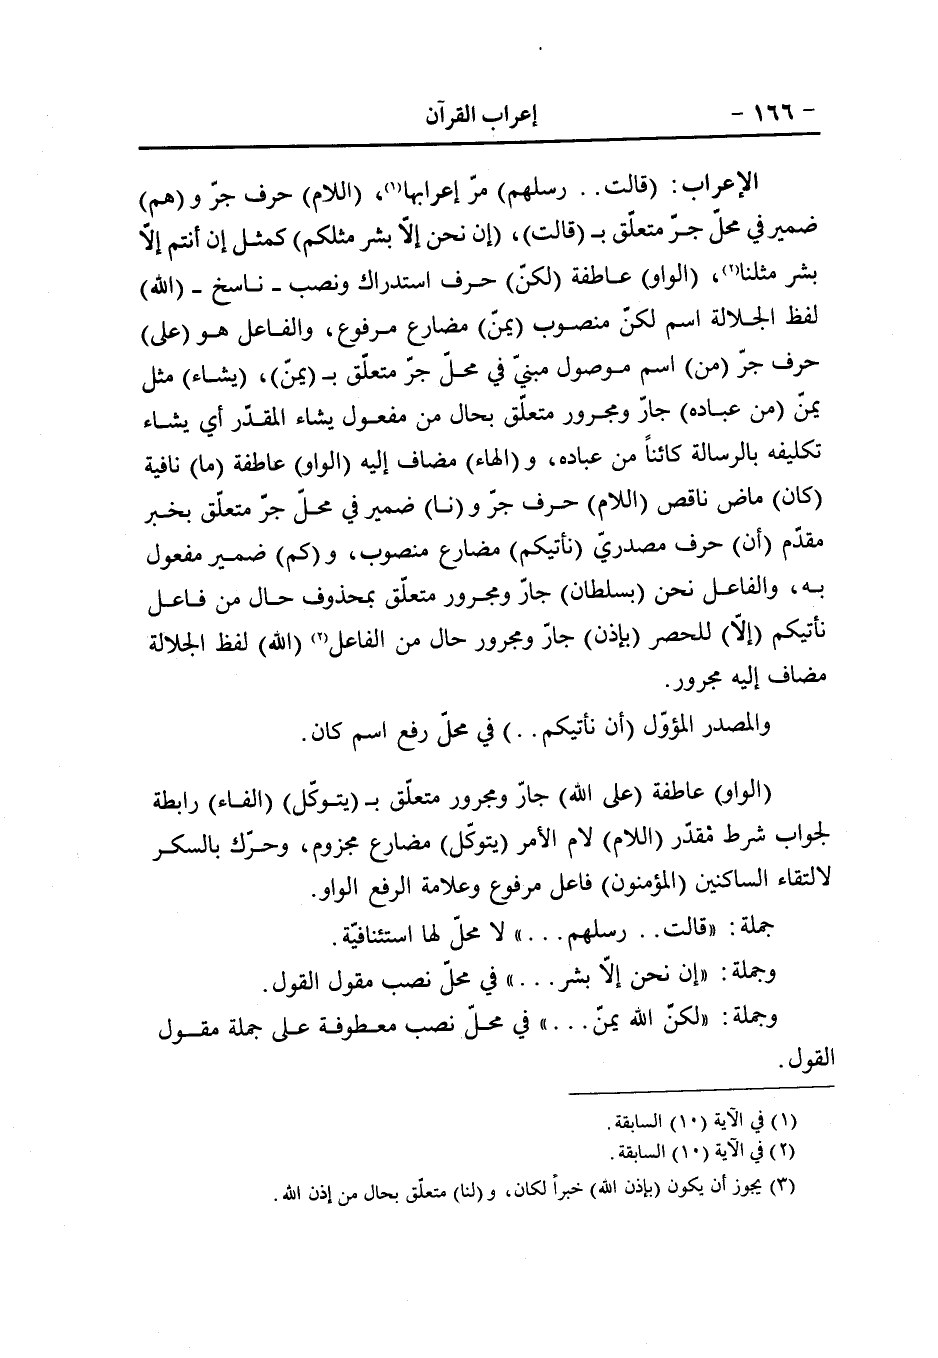 - ١٦٦ - إعراب القرآن
الإعراب: (قالت.. رسلهم) مرّ إعرابها(١)، (اللام) حرف جرّ و(هم)
ضمير في محلّ جرّ متعلّق بـ (قالت)، (إن نحن إلاّ بشر مثلكم) كمثل إن أنتم إلاّ
بشر مثلنا(٢)، (الواو) عاطفة (لكنّ) حرف استدراك ونصب ـ ناسخ ـ (الله)
لفظ الجلالة اسم لكنّ منصوب (يمنّ) مضارع مرفوع، والفاعل هو (على)
حرف جرّ (من) اسم موصول مبنيّ في محلّ جرّ متعلّق بـ (يمنّ)، (يشاء) مثل
يمنّ (من عباده) جارّ ومجرور متعلّق بحال من مفعول يشاء المقدّر أي يشاء
تكليفه بالرسالة كائناً من عباده، و(الهاء) مضاف إليه (الواو) عاطفة (ما) نافية
(كان) ماض ناقص (اللام) حرف جرّ و(نا) ضمير في محلّ جرّ متعلّق بخبر
مقدّم (أن) حرف مصدريّ (نأتيكم) مضارع منصوب، و(كم) ضمير مفعول
به، والفاعل نحن (بسلطان) جارّ ومجرور متعلّق بمحذوف حال من فاعل
نأتيكم (إلاّ) للحصر (بإذن) جارّ ومجرور حال من الفاعل(٣) (الله) لفظ الجلالة
مضاف إليه مجرور.
والمصدر المؤوّل (أن نأتيكم..) في محلّ رفع اسم كان.
(الواو) عاطفة (على الله) جارّ ومجرور متعلّق بـ (يتوكّل) (الفاء) رابطة
لجواب شرط مُقدّر (اللام) لام الأمر (يتوكّل) مضارع مجزوم، وحرّك بالسكر
لالتقاء الساكنين (المؤمنون) فاعل مرفوع وعلامة الرفع الواو.
جملة: «قالت.. رسلهم...» لا محلّ لها استئنافيّة.
وجملة: «إن نحن إلاّ بشر...» في محلّ نصب مقول القول.
وجملة: «لكنّ الله يمنّ...» في محلّ نصب معطوفة على جملة مقول
القول.
(١) في الآية (١٠) السابقة.
(٢) في الآية (١٠) السابقة.
(٣) يجوز أن يكون (بإذن الله) خبراً لكان، و(لنا) متعلّق بحال من إذن الله.